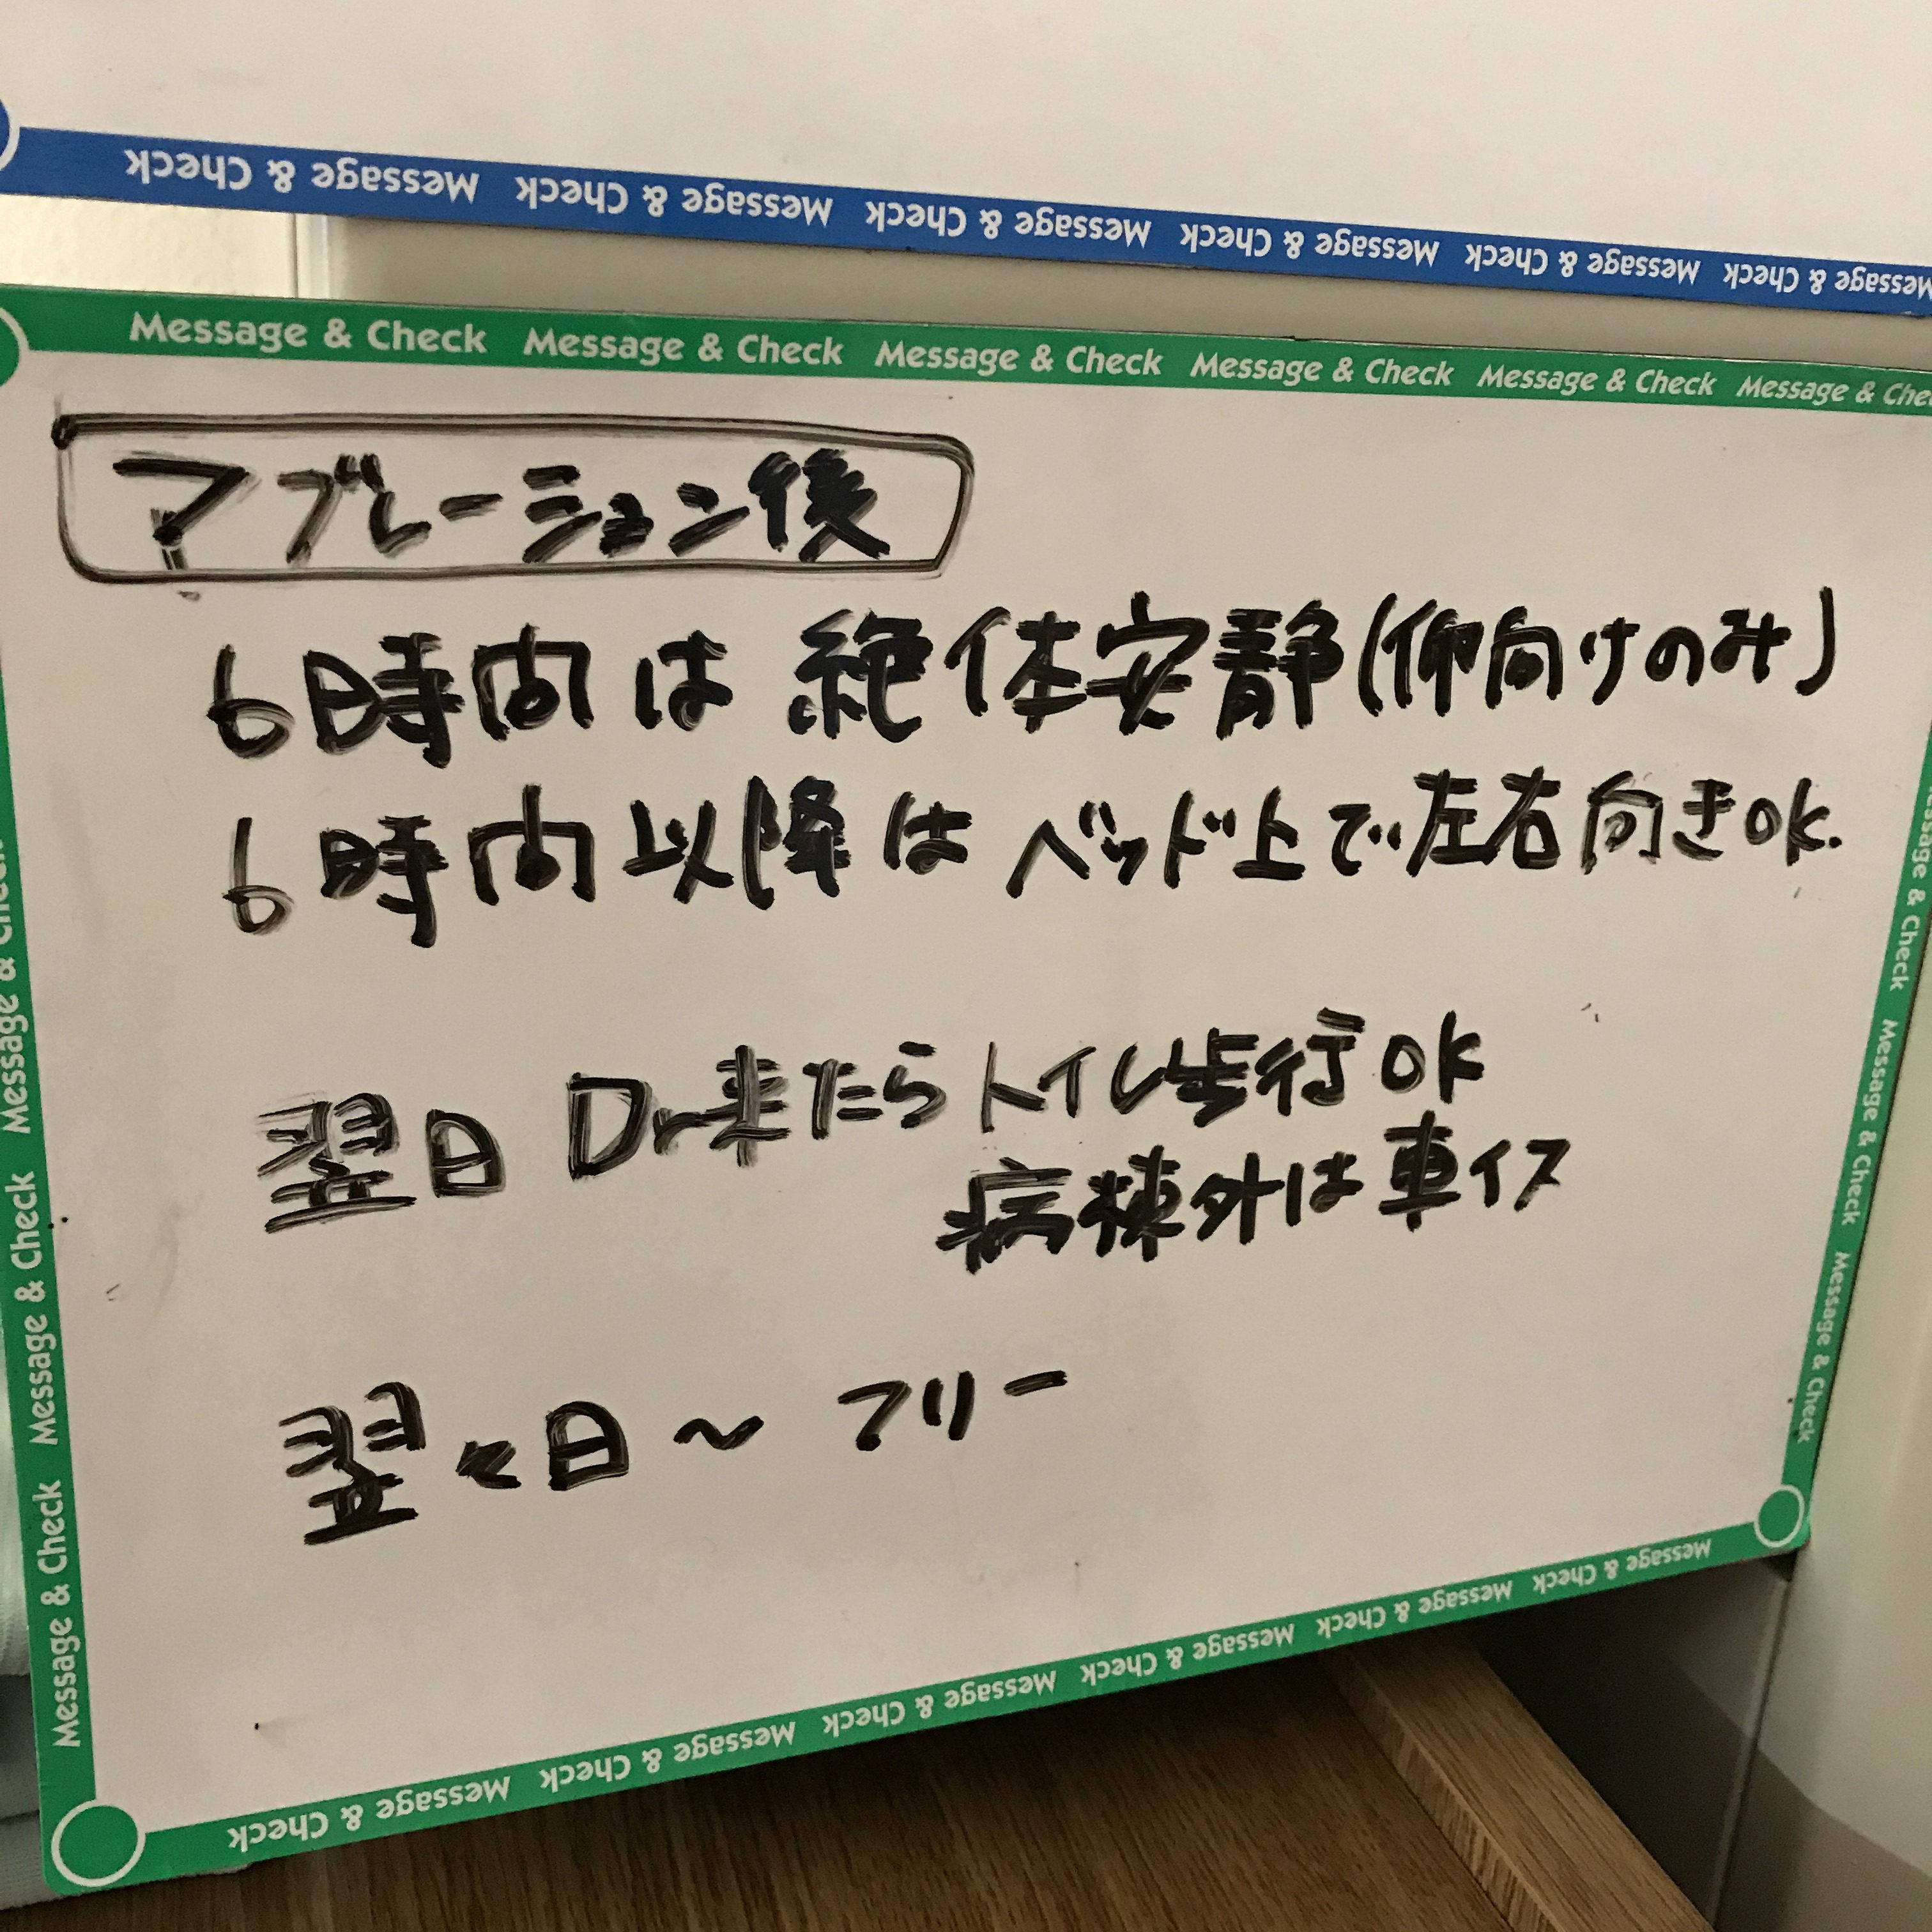 Message & Check Message & Check Message & Check Message & Check Message & Check Message
Message & Check Message & Check Message & Check Message & Check Message & Check Message & Chec
アブレーション後
6時間は絶体安静(仰向けのみ)
6時間以降はベッド上で左右向きOK.
翌日 Dr来たらトイレ歩行OK
病棟外は車イス
翌々日〜フリー
Message & Check Message & Check Message & Check Message & Check
Message & Check Message & Check Message & Check
Message & Check Message & Check Message & Check Message & Check Message & Check Message & Check